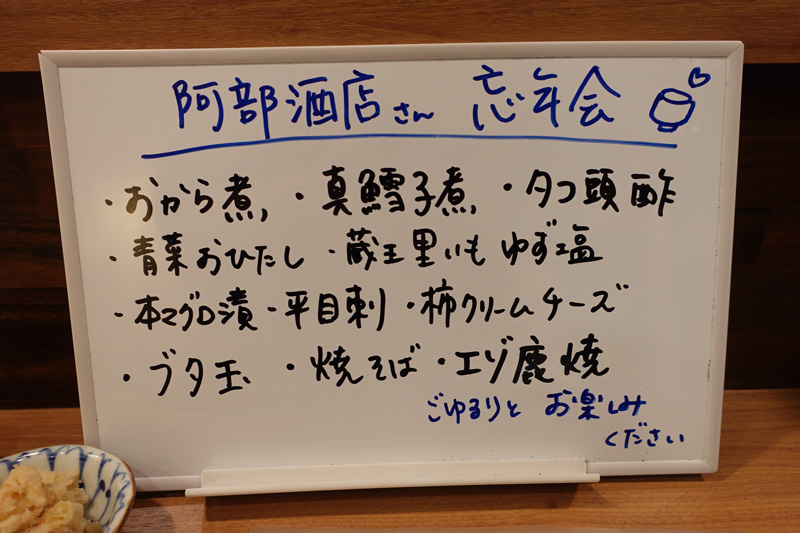 阿部酒店さん 忘年会
・おから煮 ・真鱈子煮 ・タコ頭酢
・青菜おひたし ・蔵王里いもゆず塩
・本マグロ漬 ・平目刺 ・柿クリームチーズ
・ブタ玉 ・焼そば ・エゾ鹿焼
ごゆるりと お楽しみ
ください